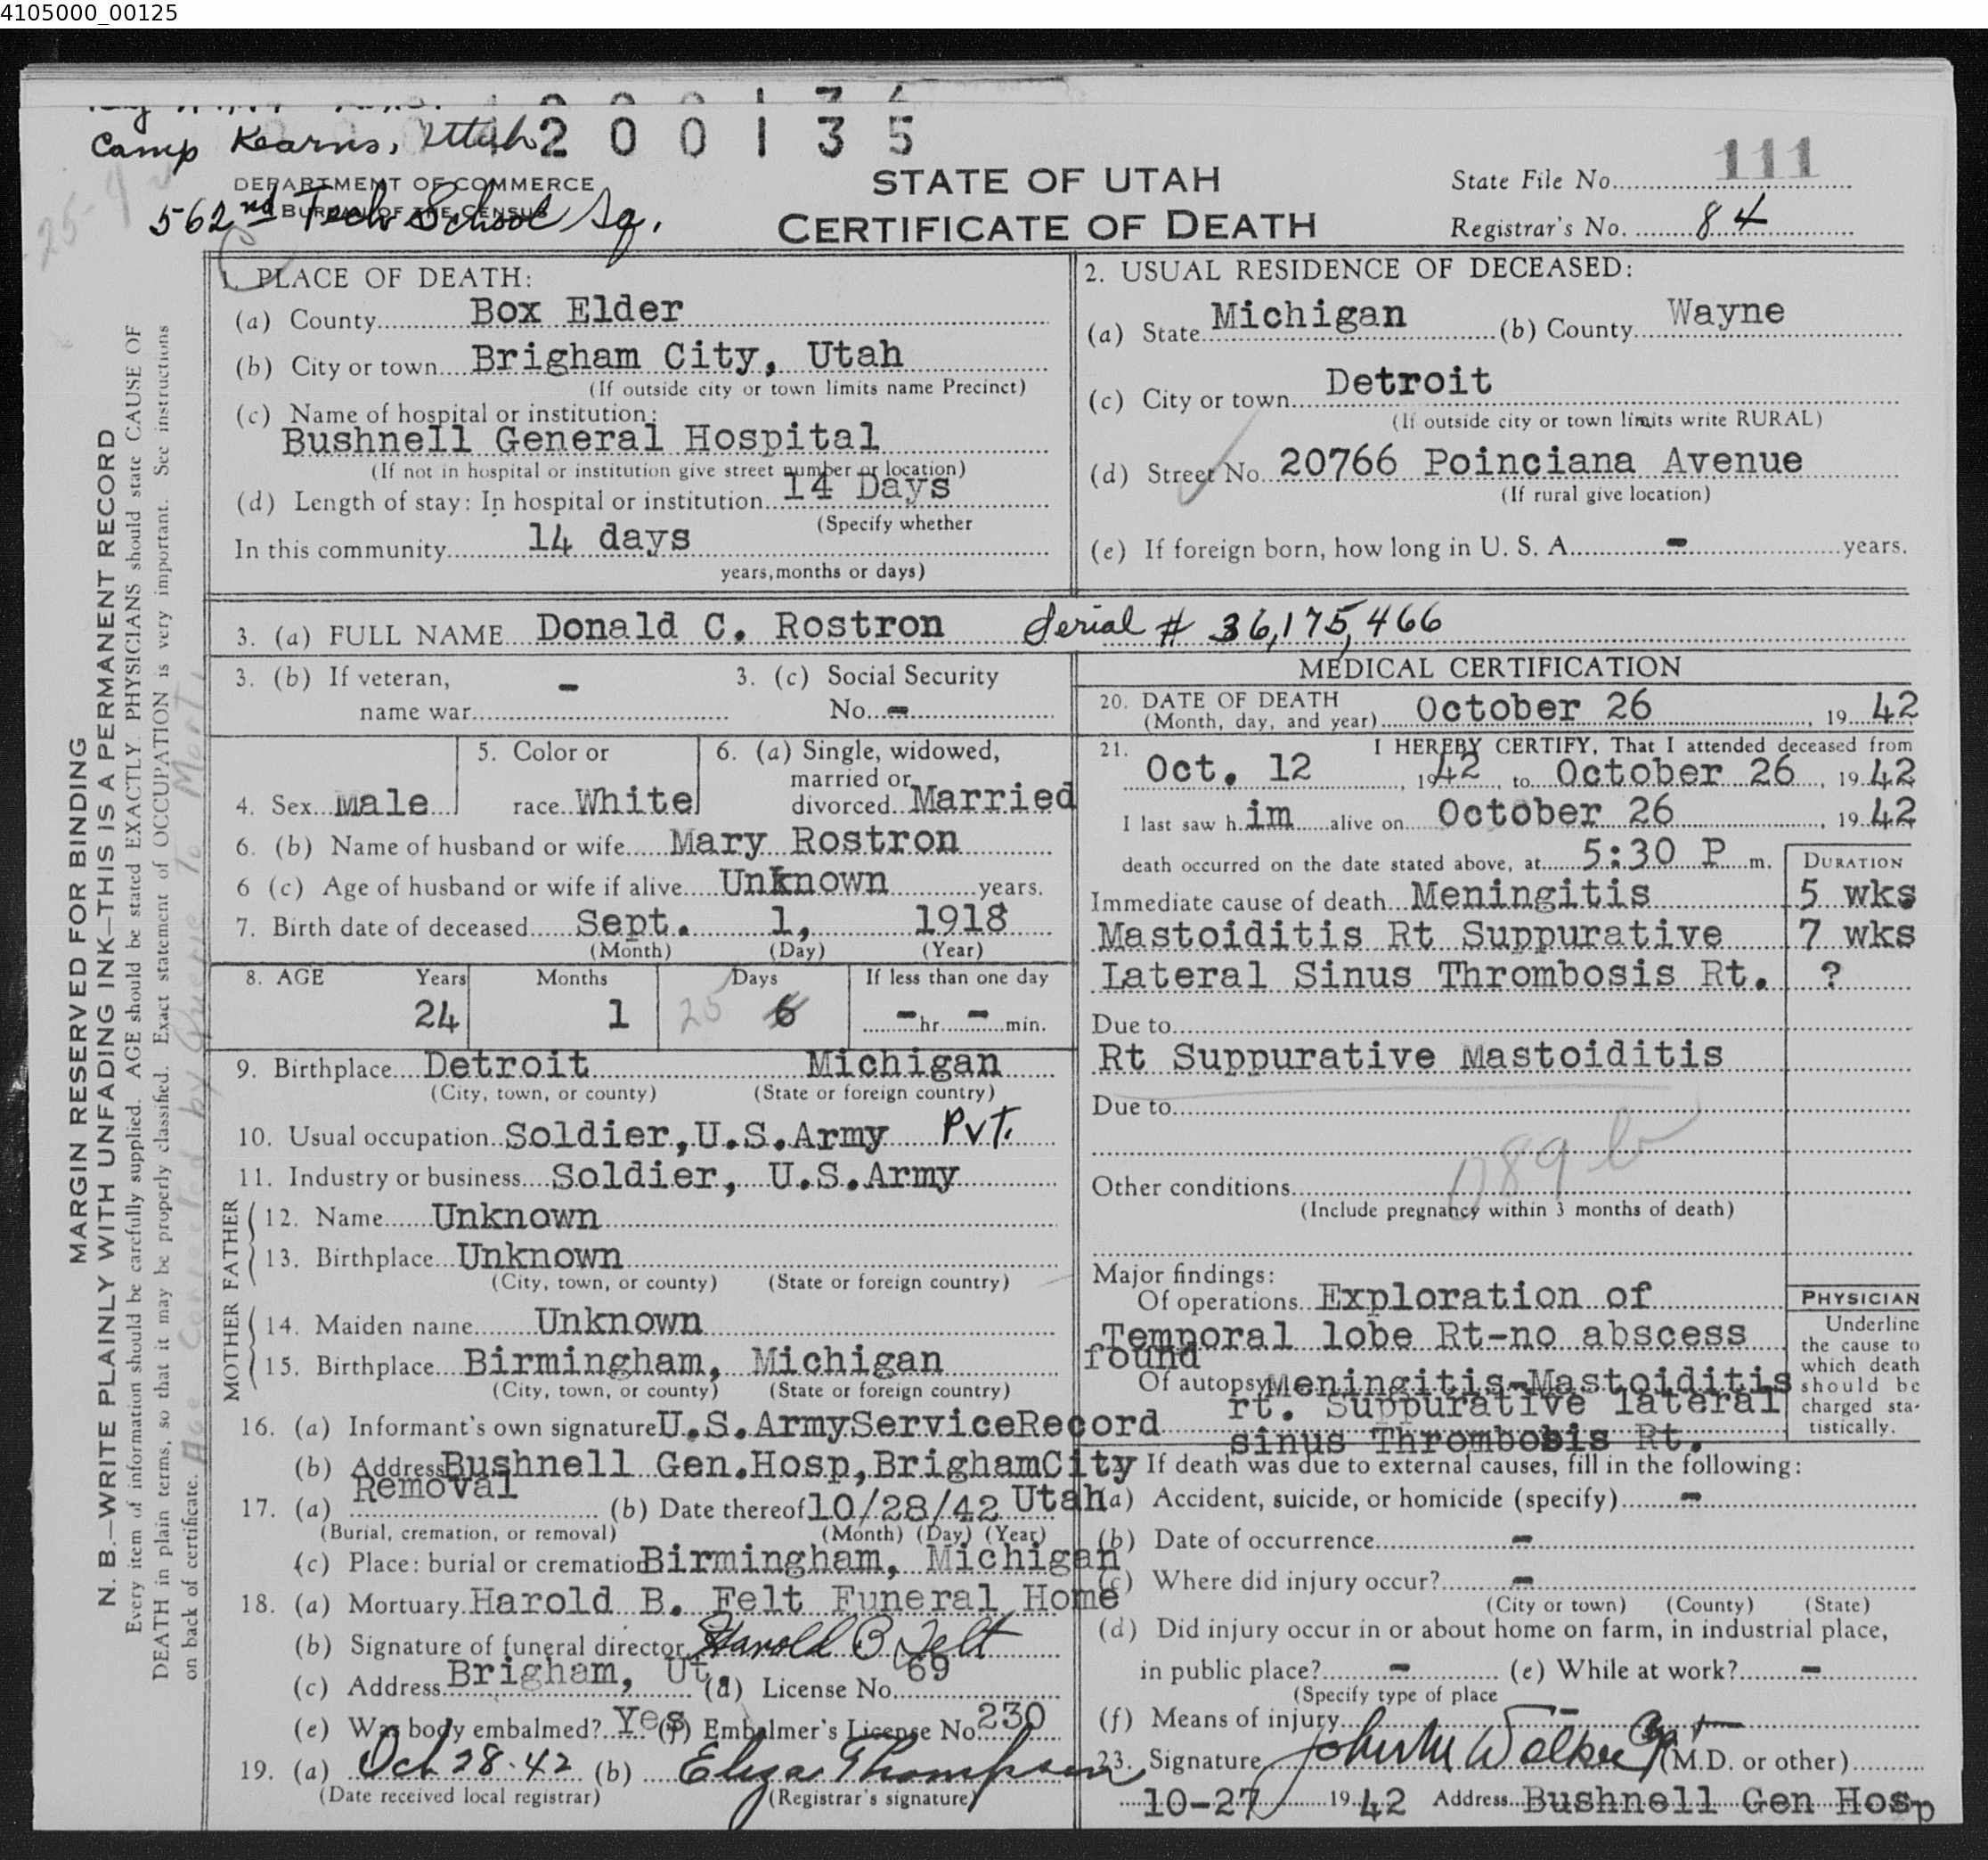 4105000_00125
Camp Kearns, Utah 200135
111
DEPARTMENT OF COMMERCE
BUREAU OF THE CENSUS
562nd Tech School Sq.
STATE OF UTAH
CERTIFICATE OF DEATH
State File No.
Registrar's No. 84
MARGIN RESERVED FOR BINDING
N. B.—WRITE PLAINLY WITH UNFADING INK—THIS IS A PERMANENT RECORD
Every item of information should be carefully supplied. AGE should be stated EXACTLY. PHYSICIANS should state CAUSE OF
DEATH in plain terms, so that it may be properly classified. Exact statement of OCCUPATION is very important. See instructions
on back of certificate.
1. PLACE OF DEATH:
(a) County Box Elder
(b) City or town Brigham City, Utah
(If outside city or town limits name Precinct)
(c) Name of hospital or institution:
Bushnell General Hospital
(If not in hospital or institution give street number or location)
(d) Length of stay: In hospital or institution 14 Days
(Specify whether
In this community 14 days
years, months or days)
2. USUAL RESIDENCE OF DECEASED:
(a) State Michigan (b) County Wayne
(c) City or town Detroit
(If outside city or town limits write RURAL)
(d) Street No. 20766 Poinciana Avenue
(If rural give location)
(e) If foreign born, how long in U. S. A. - years.
3. (a) FULL NAME Donald C. Rostron Serial # 36,175,466
3. (b) If veteran, -
name war
3. (c) Social Security
No. -
4. Sex Male
5. Color or
race White
6. (a) Single, widowed,
married or
divorced Married
6. (b) Name of husband or wife Mary Rostron
6 (c) Age of husband or wife if alive Unknown years.
7. Birth date of deceased Sept. 1, 1918
(Month) (Day) (Year)
8. AGE Years Months Days If less than one day
24 1 25 6 - hr. - min.
9. Birthplace Detroit Michigan
(City, town, or county) (State or foreign country)
10. Usual occupation Soldier, U.S.Army Pvt.
11. Industry or business Soldier, U.S.Army
FATHER
12. Name Unknown
13. Birthplace Unknown
(City, town, or county) (State or foreign country)
MOTHER
14. Maiden name Unknown
15. Birthplace Birmingham, Michigan
(City, town, or county) (State or foreign country)
16. (a) Informant's own signature U.S.ArmyServiceRecord
(b) Address Bushnell Gen.Hosp, BrighamCity
Utah
17. (a) Removal (b) Date thereof 10/28/42
(Burial, cremation, or removal) (Month) (Day) (Year)
(c) Place: burial or cremation Birmingham, Michigan
18. (a) Mortuary Harold B. Felt Funeral Home
(b) Signature of funeral director Harold B Felt
(c) Address Brigham, Ut. (d) License No. 69
(e) Was body embalmed? Yes (f) Embalmer's License No. 230
19. (a) Oct 28-42 (b) Eliza Thompson
(Date received local registrar) (Registrar's signature)
MEDICAL CERTIFICATION
20. DATE OF DEATH
(Month, day, and year) October 26, 1942
21. I HEREBY CERTIFY, That I attended deceased from
Oct. 12, 1942, to October 26, 1942
I last saw him alive on October 26, 1942
death occurred on the date stated above, at 5:30 P m.
DURATION
Immediate cause of death Meningitis 5 wks
Mastoiditis Rt Suppurative 7 wks
Lateral Sinus Thrombosis Rt. ?
Due to
Rt Suppurative Mastoiditis
Due to
089 b
Other conditions
(Include pregnancy within 3 months of death)
Major findings:
Of operations Exploration of
Temporal lobe Rt-no abscess
found
Of autopsy Meningitis-Mastoiditis
rt. Suppurative lateral
sinus Thrombosis Rt.
PHYSICIAN
Underline
the cause to
which death
should be
charged sta-
tistically.
If death was due to external causes, fill in the following:
(a) Accident, suicide, or homicide (specify) -
(b) Date of occurrence -
(c) Where did injury occur? -
(City or town) (County) (State)
(d) Did injury occur in or about home on farm, in industrial place,
in public place? - (e) While at work? -
(Specify type of place
(f) Means of injury -
23. Signature John M Walker Capt (M.D. or other)
10-27 1942 Address Bushnell Gen Hosp